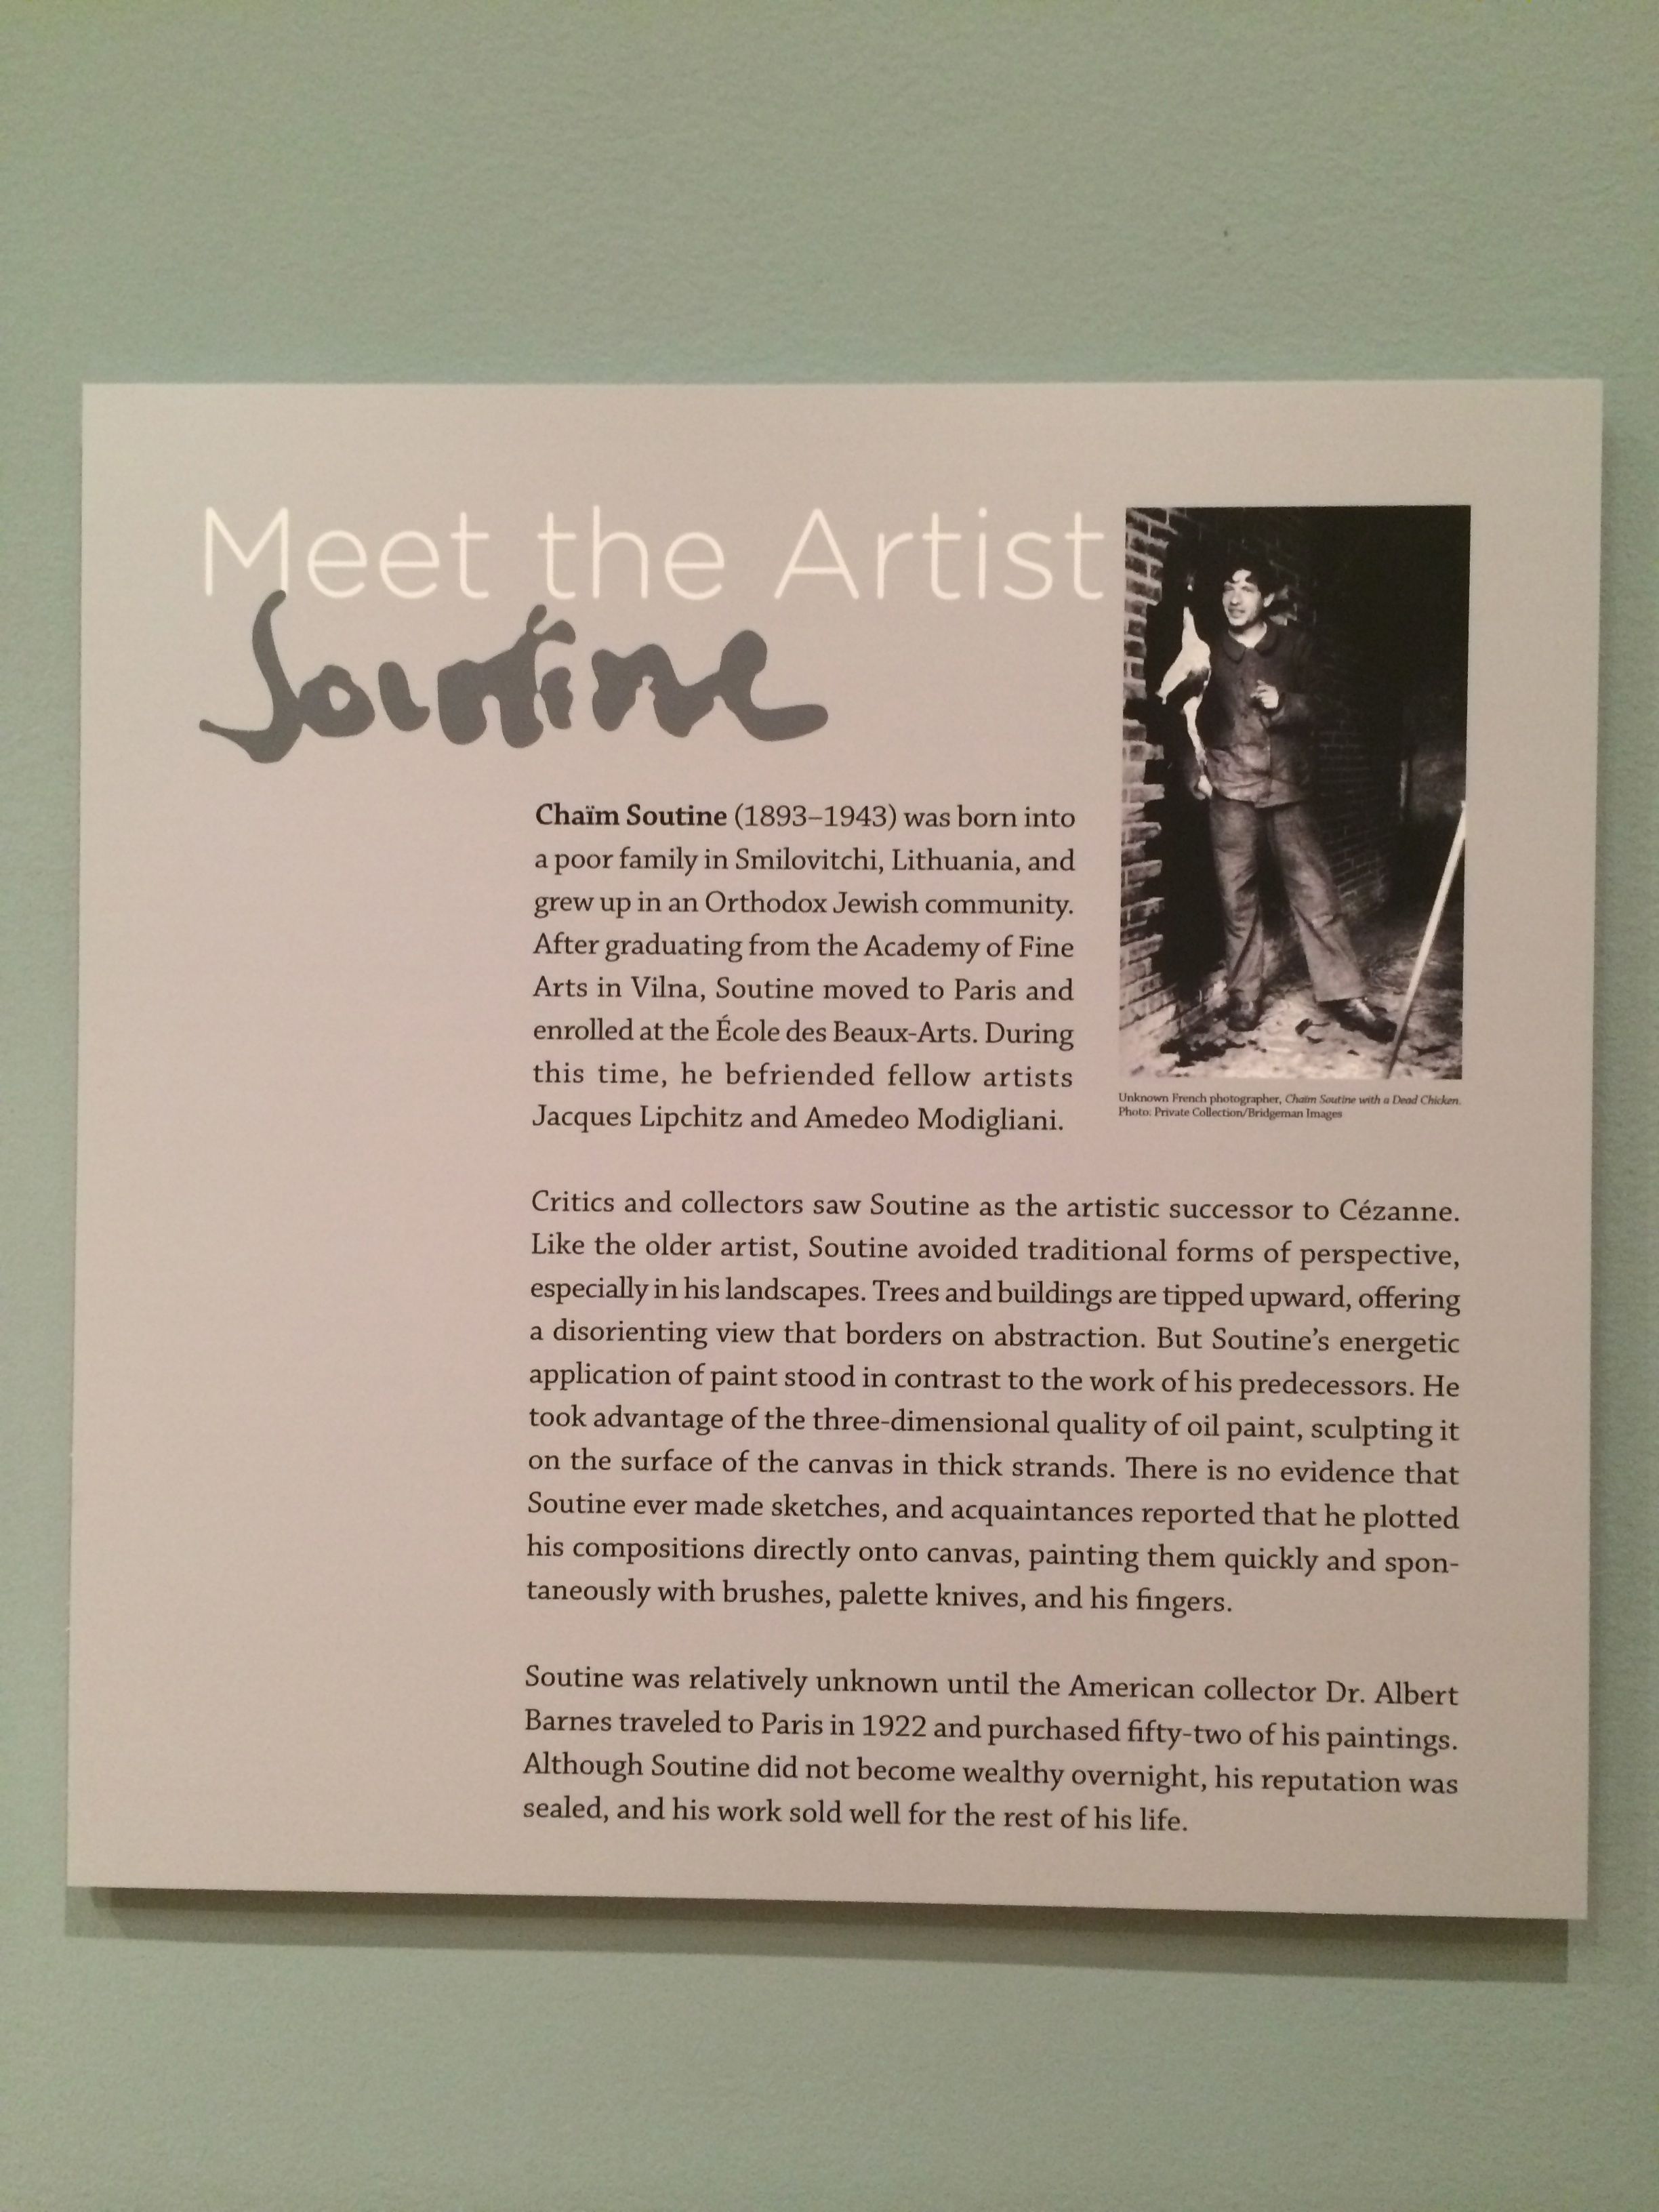 Meet the Artist
Soutine
Chaïm Soutine (1893–1943) was born into
a poor family in Smilovitchi, Lithuania, and
grew up in an Orthodox Jewish community.
After graduating from the Academy of Fine
Arts in Vilna, Soutine moved to Paris and
enrolled at the École des Beaux-Arts. During
this time, he befriended fellow artists
Jacques Lipchitz and Amedeo Modigliani.
Unknown French photographer, Chaïm Soutine with a Dead Chicken.
Photo: Private Collection/Bridgeman Images
Critics and collectors saw Soutine as the artistic successor to Cézanne.
Like the older artist, Soutine avoided traditional forms of perspective,
especially in his landscapes. Trees and buildings are tipped upward, offering
a disorienting view that borders on abstraction. But Soutine’s energetic
application of paint stood in contrast to the work of his predecessors. He
took advantage of the three-dimensional quality of oil paint, sculpting it
on the surface of the canvas in thick strands. There is no evidence that
Soutine ever made sketches, and acquaintances reported that he plotted
his compositions directly onto canvas, painting them quickly and spon-
taneously with brushes, palette knives, and his fingers.
Soutine was relatively unknown until the American collector Dr. Albert
Barnes traveled to Paris in 1922 and purchased fifty-two of his paintings.
Although Soutine did not become wealthy overnight, his reputation was
sealed, and his work sold well for the rest of his life.